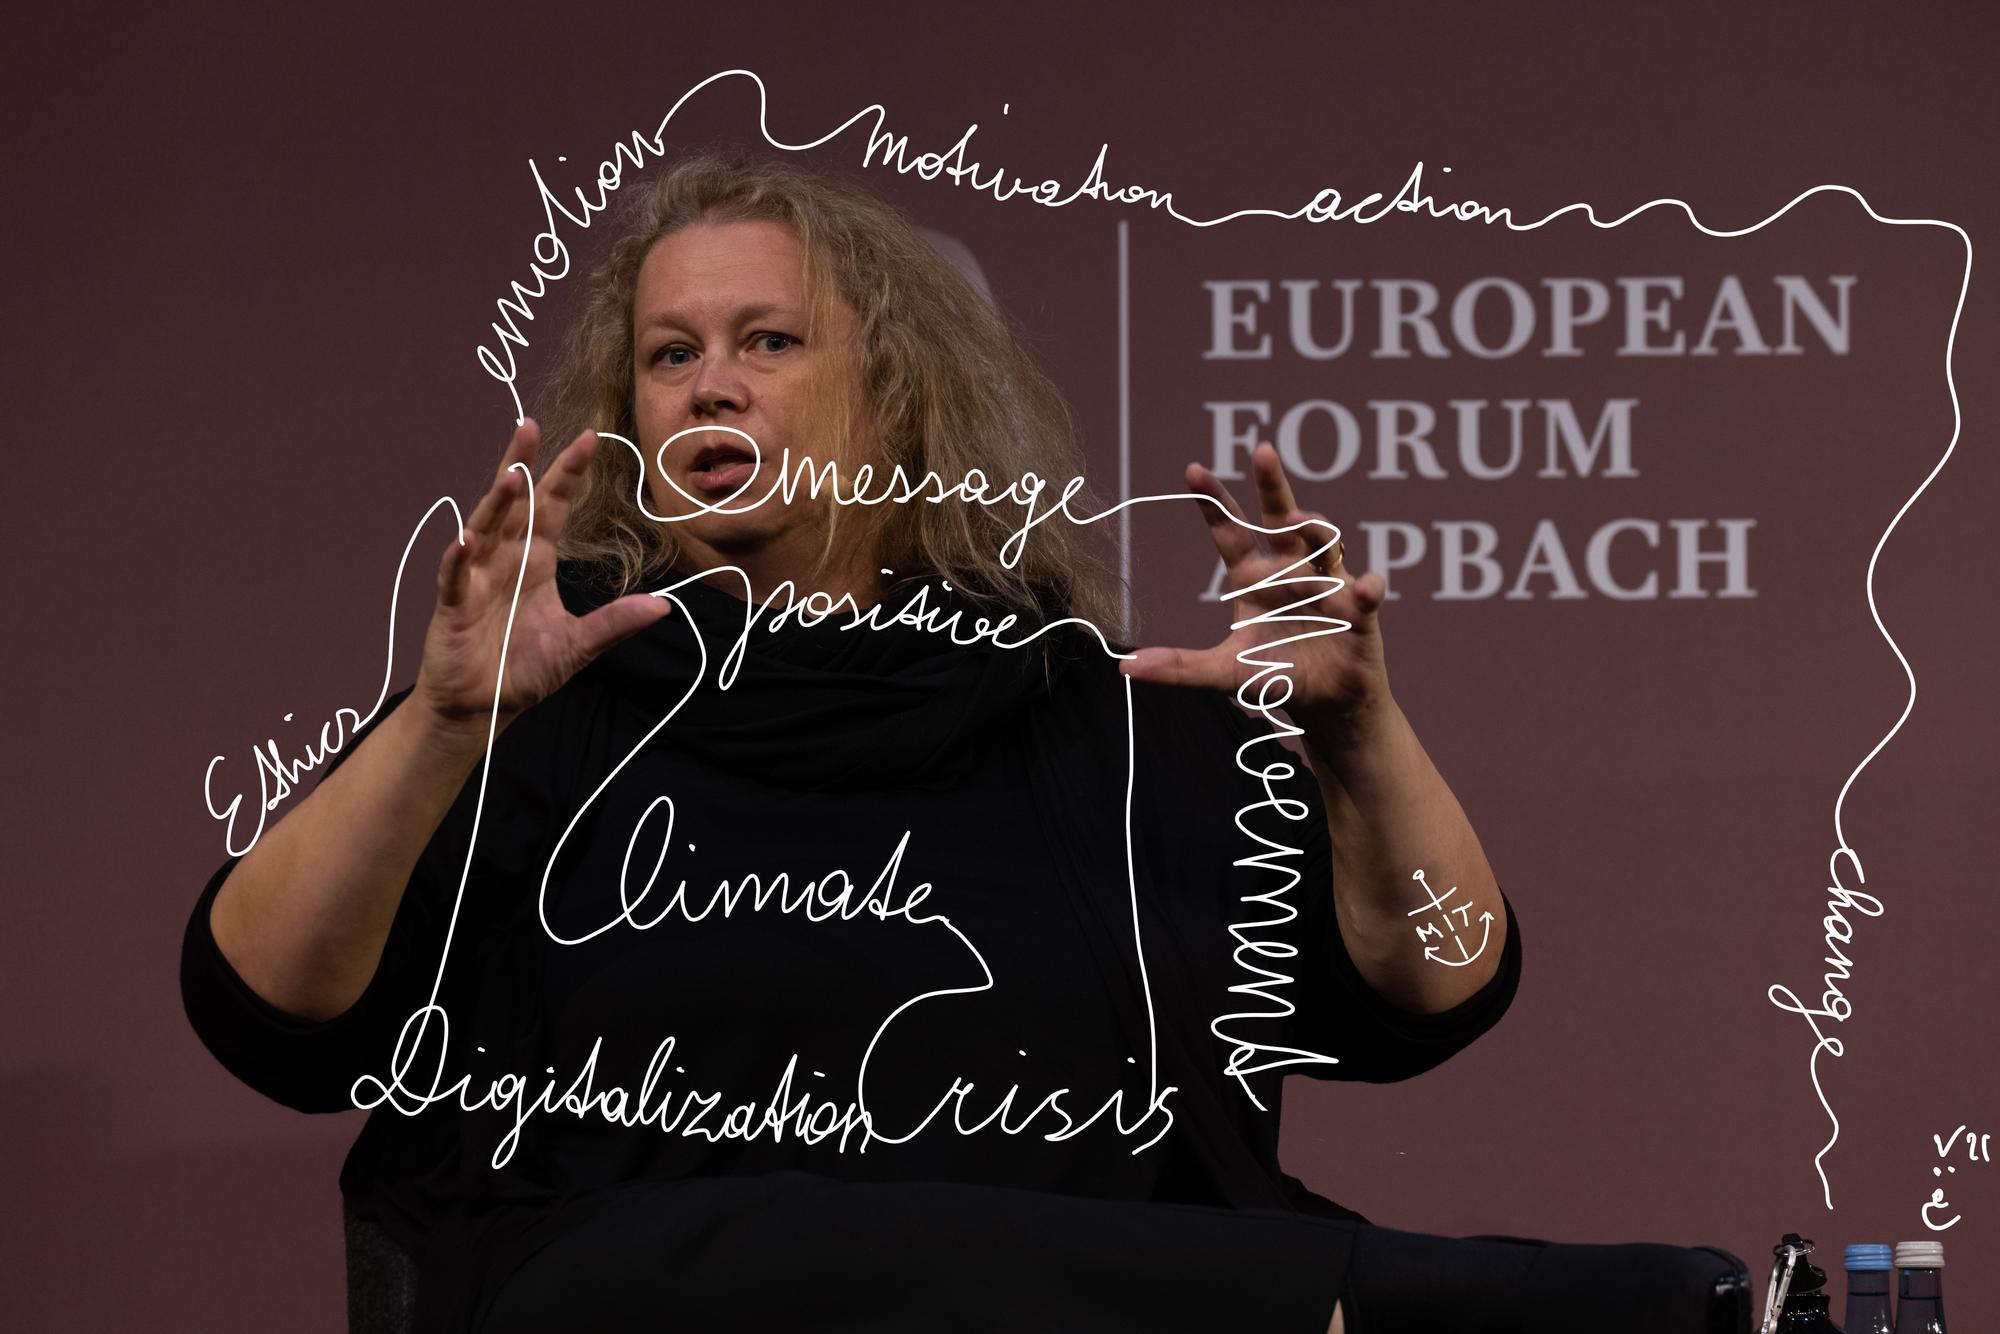 emotion motivation action
EUROPEAN
FORUM
ALPBACH
message
positive
Ethics
Movement
Climate
change
Digitalization Crisis